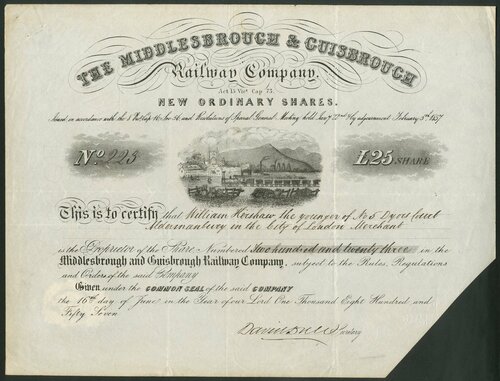 THE MIDDLESBROUGH & GUISBROUGH
Railway Company.
Act 15 Vict Cap 73.
NEW ORDINARY SHARES.
Issued in accordance with the and Resolutions of Special General Meeting held 22nd & by adjournment February 3rd 1857
No. 223
£25 SHARE
This is to certify that William Horshaw, the younger of No 5 Dyers Court
Aldermanbury in the City of London Merchant
is the Proprietor of the Share Numbered Two hundred and twenty three in the
Middlesbrough and Guisbrough Railway Company, subject to the Rules, Regulations
and Orders of the said Company
Given under the COMMON SEAL of the said COMPANY
the 16th day of June in the Year of our Lord One Thousand Eight Hundred and
Fifty Seven
Secretary